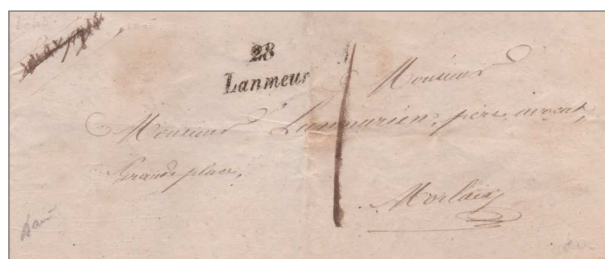 28
Lanmeur
Monsieur
Monsieur Lanmurien, père avocat,
Grande place,
Morlaix